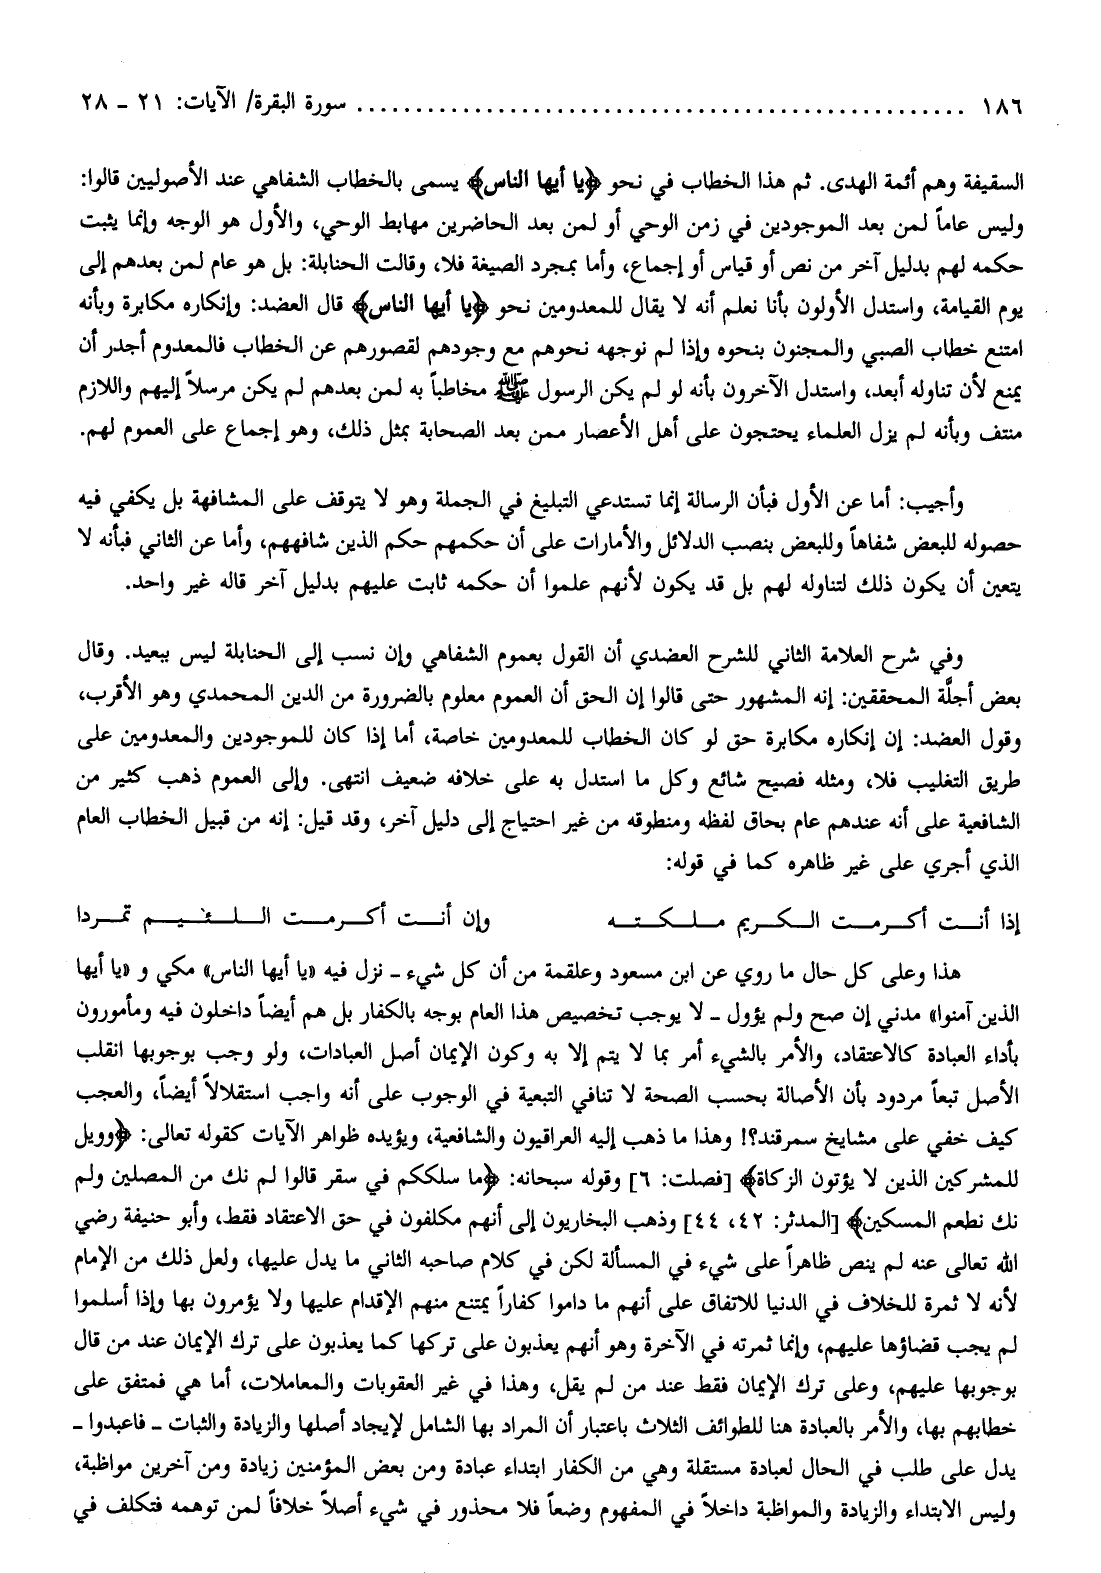 ١٨٦ .................................................... سورة البقرة/ الآيات: ٢١ - ٢٨
السقيفة وهم أئمة الهدى. ثم هذا الخطاب في نحو ﴿يا أيها الناس﴾ يسمى بالخطاب الشفاهي عند الأصوليين قالوا:
وليس عاماً لمن بعد الموجودين في زمن الوحي أو لمن بعد الحاضرين مهابط الوحي، والأول هو الوجه وإنما يثبت
حكمه لهم بدليل آخر من نص أو قياس أو إجماع، وأما بمجرد الصيغة فلا، وقالت الحنابلة: بل هو عام لمن بعدهم إلى
يوم القيامة، واستدل الأولون بأنا نعلم أنه لا يقال للمعدومين نحو ﴿يا أيها الناس﴾ قال العضد: وإنكاره مكابرة وبأنه
امتنع خطاب الصبي والمجنون بنحوه وإذا لم نوجهه نحوهم مع وجودهم لقصورهم عن الخطاب فالمعدوم أجدر أن
يمنع لأن تناوله أبعد، واستدل الآخرون بأنه لو لم يكن الرسول ﷺ مخاطباً به لمن بعدهم لم يكن مرسلاً إليهم واللازم
منتف وبأنه لم يزل العلماء يحتجون على أهل الأعصار ممن بعد الصحابة بمثل ذلك، وهو إجماع على العموم لهم.
وأجيب: أما عن الأول فبأن الرسالة إنما تستدعي التبليغ في الجملة وهو لا يتوقف على المشافهة بل يكفي فيه
حصوله للبعض شفاهاً وللبعض بنصب الدلائل والأمارات على أن حكمهم حكم الذين شافههم، وأما عن الثاني فبأنه لا
يتعين أن يكون ذلك لتناوله لهم بل قد يكون لأنهم علموا أن حكمه ثابت عليهم بدليل آخر قاله غير واحد.
وفي شرح العلامة الثاني للشرح العضدي أن القول بعموم الشفاهي وإن نسب إلى الحنابلة ليس ببعيد. وقال
بعض أجلَّة المحققين: إنه المشهور حتى قالوا إن الحق أن العموم معلوم بالضرورة من الدين المحمدي وهو الأقرب،
وقول العضد: إن إنكاره مكابرة حق لو كان الخطاب للمعدومين خاصة، أما إذا كان للموجودين والمعدومين على
طريق التغليب فلا، ومثله فصيح شائع وكل ما استدل به على خلافه ضعيف انتهى. وإلى العموم ذهب كثير من
الشافعية على أنه عندهم عام بحاق لفظه ومنطوقه من غير احتياج إلى دليل آخر، وقد قيل: إنه من قبيل الخطاب العام
الذي أجري على غير ظاهره كما في قوله:
إذا أنت أكرمت الكريم ملكته وإن أنت أكرمت اللئيم تمردا
هذا وعلى كل حال ما روي عن ابن مسعود وعلقمة من أن كل شيء - نزل فيه «يا أيها الناس» مكي و «يا أيها
الذين آمنوا» مدني إن صح ولم يؤول - لا يوجب تخصيص هذا العام بوجه بالكفار بل هم أيضاً داخلون فيه ومأمورون
بأداء العبادة كالاعتقاد، والأمر بالشيء أمر بما لا يتم إلا به وكون الإيمان أصل العبادات، ولو وجب بوجوبها انقلب
الأصل تبعاً مردود بأن الأصالة بحسب الصحة لا تنافي التبعية في الوجوب على أنه واجب استقلالاً أيضاً، والعجب
كيف خفي على مشايخ سمرقند؟! وهذا ما ذهب إليه العراقيون والشافعية، ويؤيده ظواهر الآيات كقوله تعالى: ﴿وويل
للمشركين الذين لا يؤتون الزكاة﴾ [فصلت: ٦] وقوله سبحانه: ﴿ما سلككم في سقر قالوا لم نك من المصلين ولم
نك نطعم المسكين﴾ [المدثر: ٤٢، ٤٤] وذهب البخاريون إلى أنهم مكلفون في حق الاعتقاد فقط، وأبو حنيفة رضي
الله تعالى عنه لم ينص ظاهراً على شيء في المسألة لكن في كلام صاحبه الثاني ما يدل عليها، ولعل ذلك من الإمام
لأنه لا ثمرة للخلاف في الدنيا للاتفاق على أنهم ما داموا كفاراً يمتنع منهم الإقدام عليها ولا يؤمرون بها وإذا أسلموا
لم يجب قضاؤها عليهم، وإنما ثمرته في الآخرة وهو أنهم يعذبون على تركها كما يعذبون على ترك الإيمان عند من قال
بوجوبها عليهم، وعلى ترك الإيمان فقط عند من لم يقل، وهذا في غير العقوبات والمعاملات، أما هي فمتفق على
خطابهم بها، والأمر بالعبادة هنا للطوائف الثلاث باعتبار أن المراد بها الشامل لإيجاد أصلها والزيادة والثبات - فاعبدوا -
يدل على طلب في الحال لعبادة مستقلة وهي من الكفار ابتداء عبادة ومن بعض المؤمنين زيادة ومن آخرين مواظبة،
وليس الابتداء والزيادة والمواظبة داخلاً في المفهوم وضعاً فلا محذور في شيء أصلاً خلافاً لمن توهمه فتكلف في